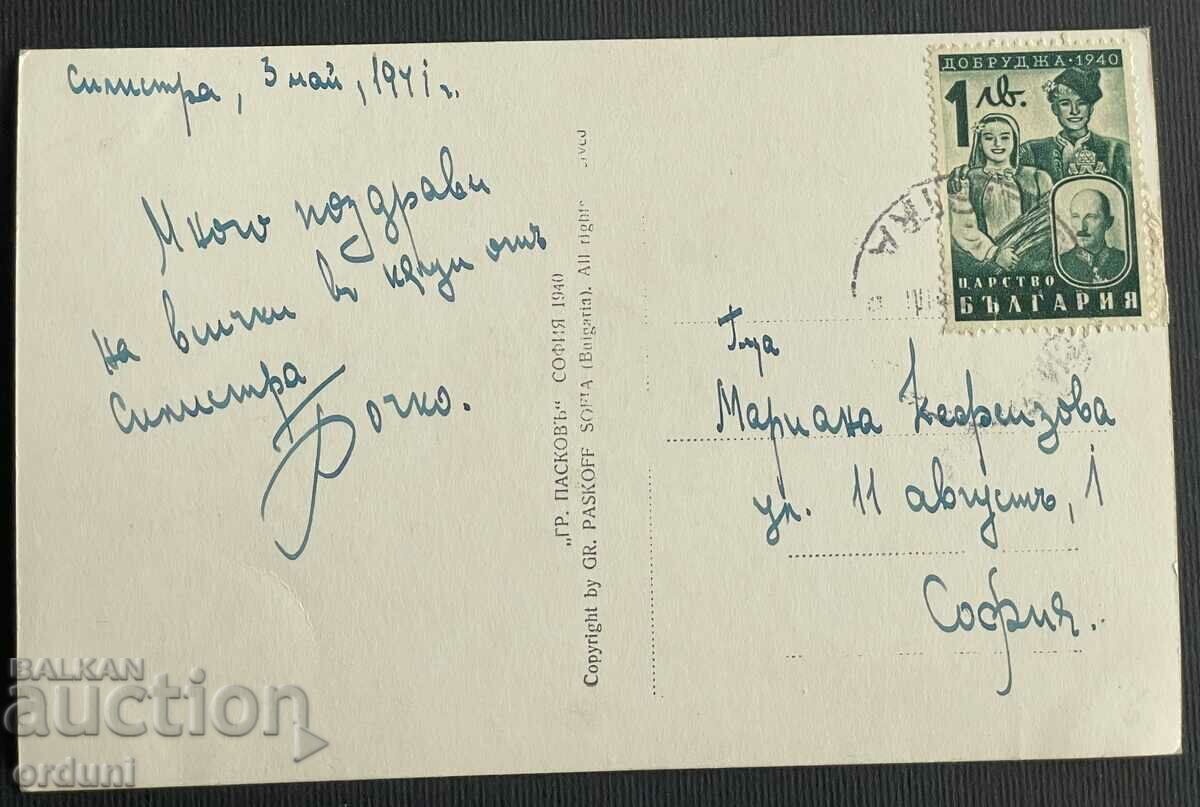 Силистра, 3 май, 1941 г.
Много поздрави
на всички въ къщи отъ
Силистра
Бочко.
„ГР. ПАСКОВЪ“ СОФИЯ 1940
Copyright by GR. PASKOFF SOFIA (Bulgaria). All rights
ДОБРУДЖА · 1940
1 лв.
ЦАРСТВО
БЪЛГАРИЯ
Г-ца
Мариана
ул. 11 августъ, 1
София.
BALKAN
auction
orduni